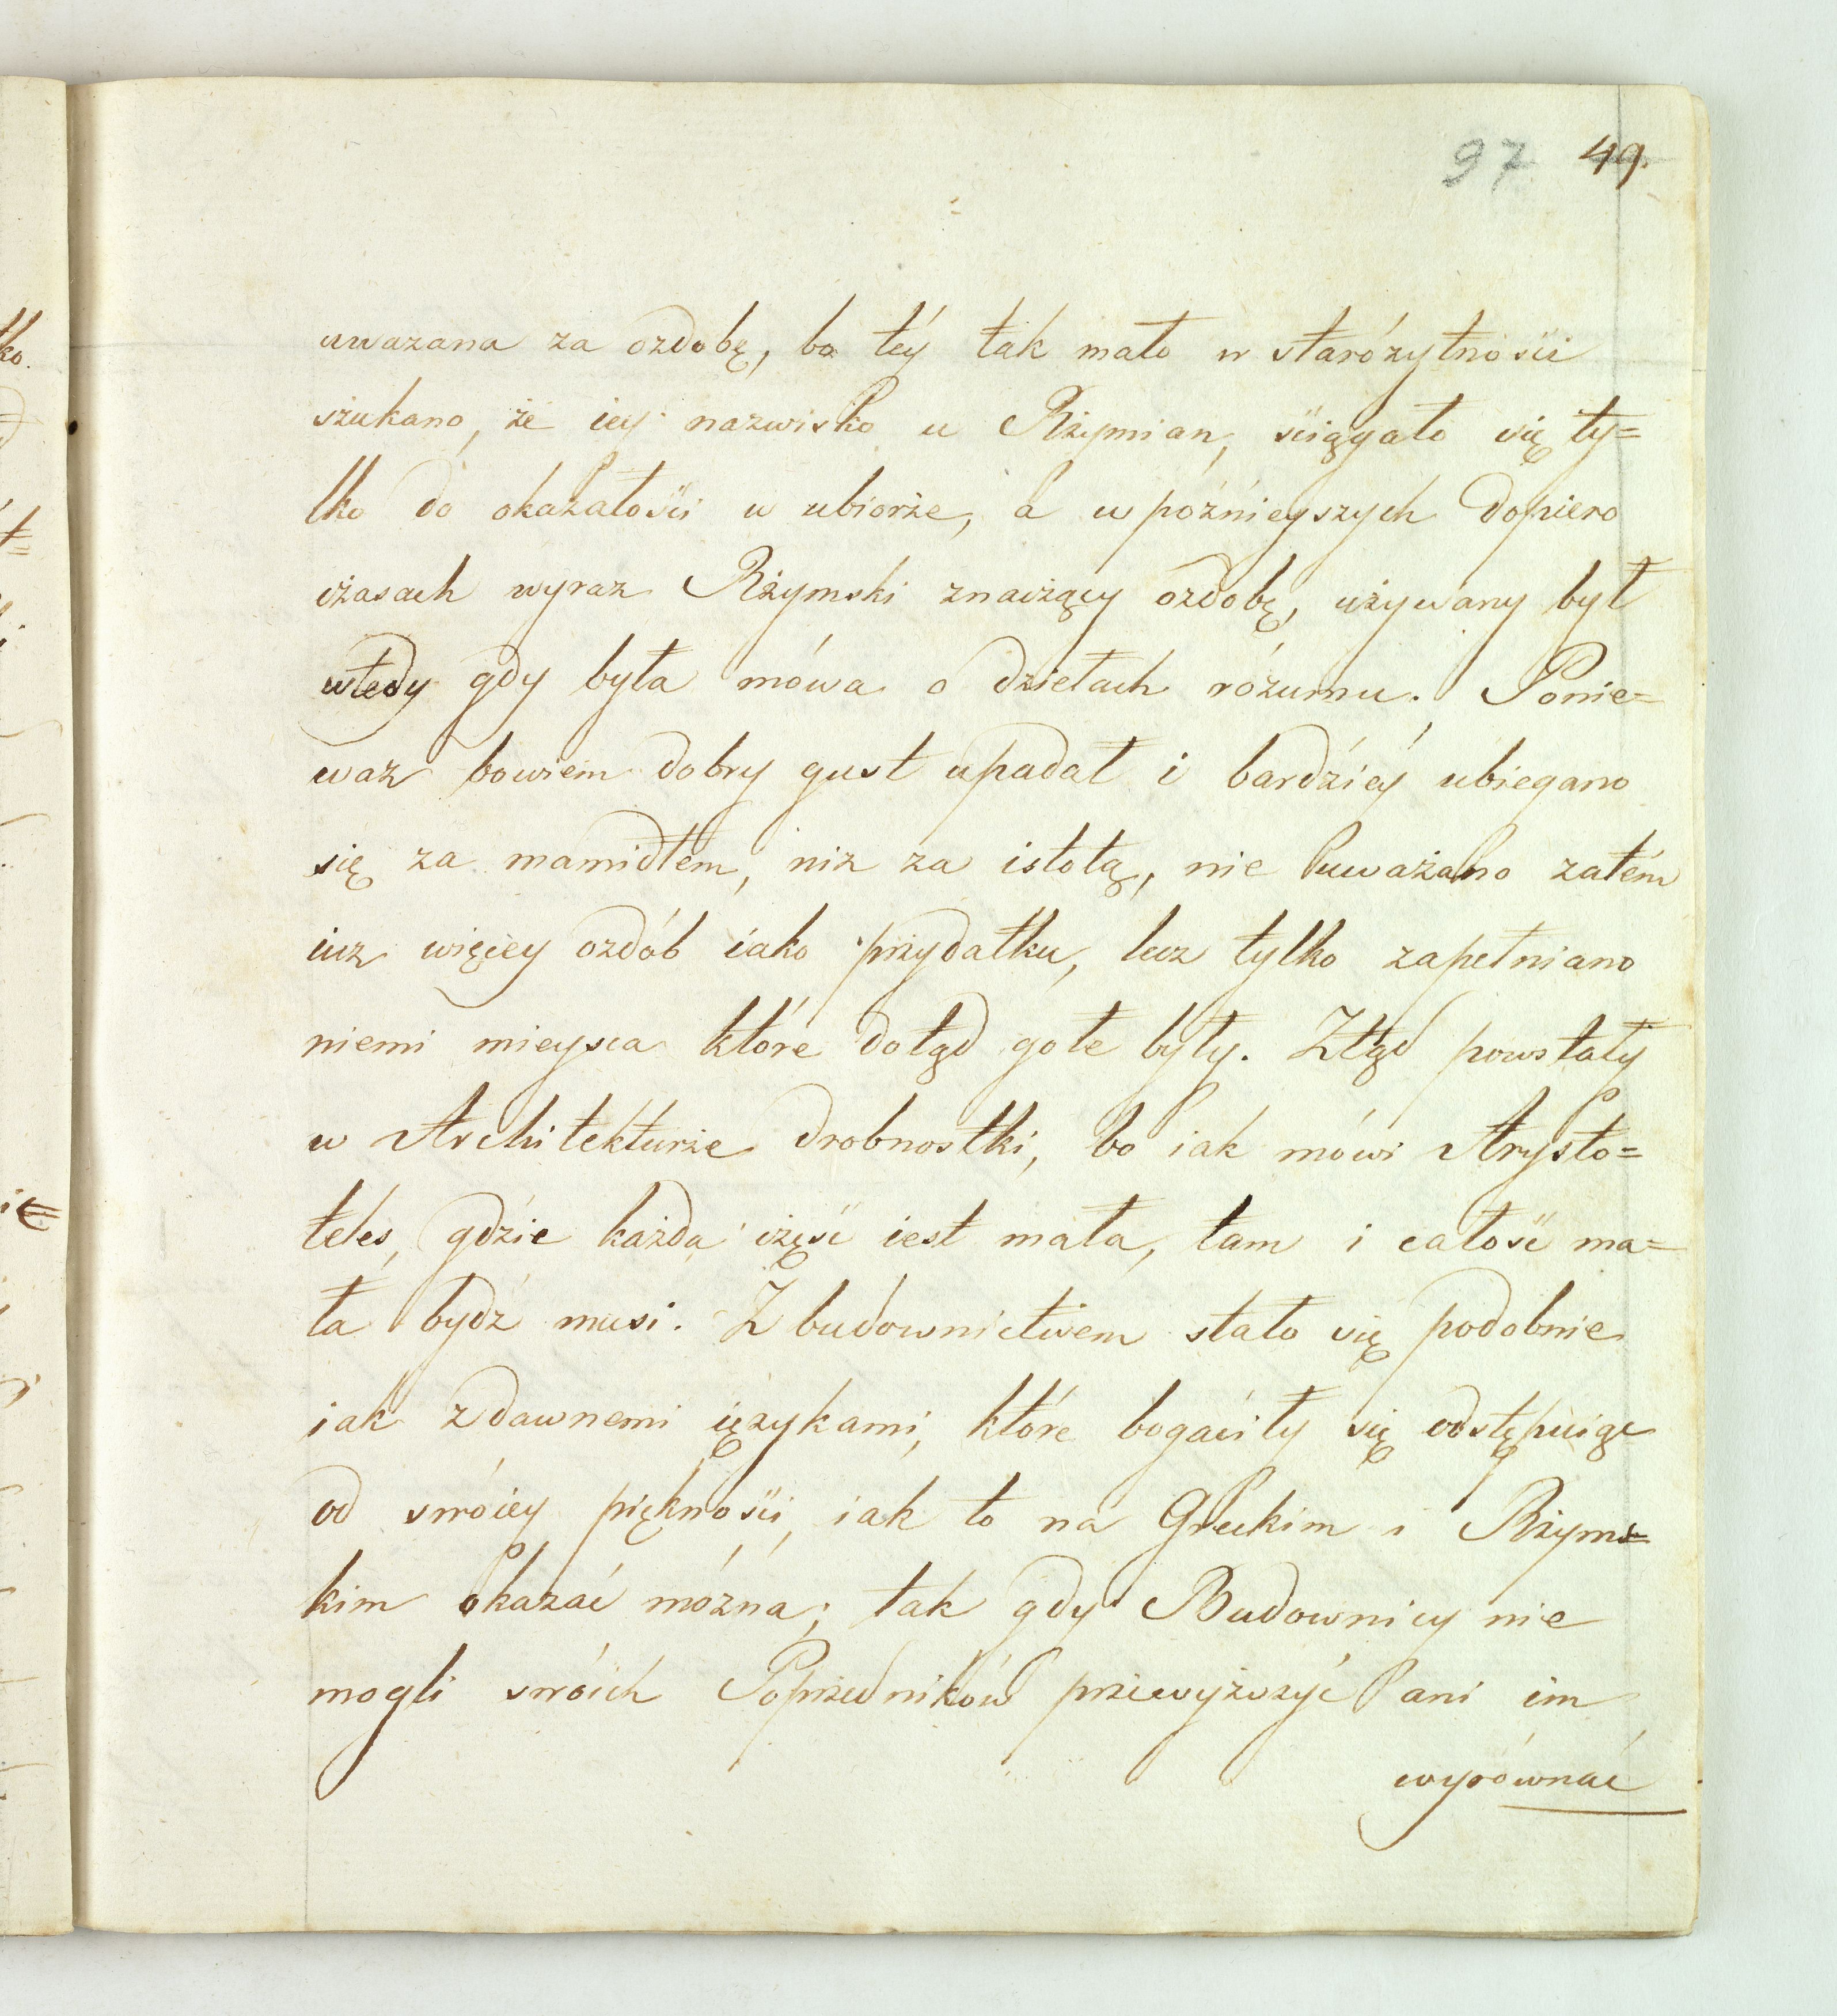 97 49.
uwazana za ozdobę, bo téy tak mało w staróżytnośći
szukano, że iey nazwisko u Rzymian, śćiągało się ty=
lko do okazałośći w ubiorze, á w póżnieyszych dopiero
czasach wyraz Rzymski znaczący ozdobę, używany był
wtedy gdy była mówa o dziełach rózumu. Ponie=
waz bowiem dobry gust upadał i bardźiéy ubiegano
się za mamidłem, niz za istotą, nie uważano zatém
iuz więcey ozdób iako przydatku, lecz tylko zapełniano
niemi mieysca które dotąd gołe były. Ztąd powstały
w Architekturze drobnostki, bo iak mówi Arysto=
teles, gdźie każda część iest mała, tam i całość ma=
ła bydź musi. Z budownictwem stało się podobnie
iak z dawnemi ięzykami, które bogaćiły się odstępuiąc
od swóiey pięknośći, iak to na Greckim i Rzyms=
kim okazać mózna; tak gdy Budownicy nie
mogli swóich Poprzedników przewyższyć ani im
wyrównać